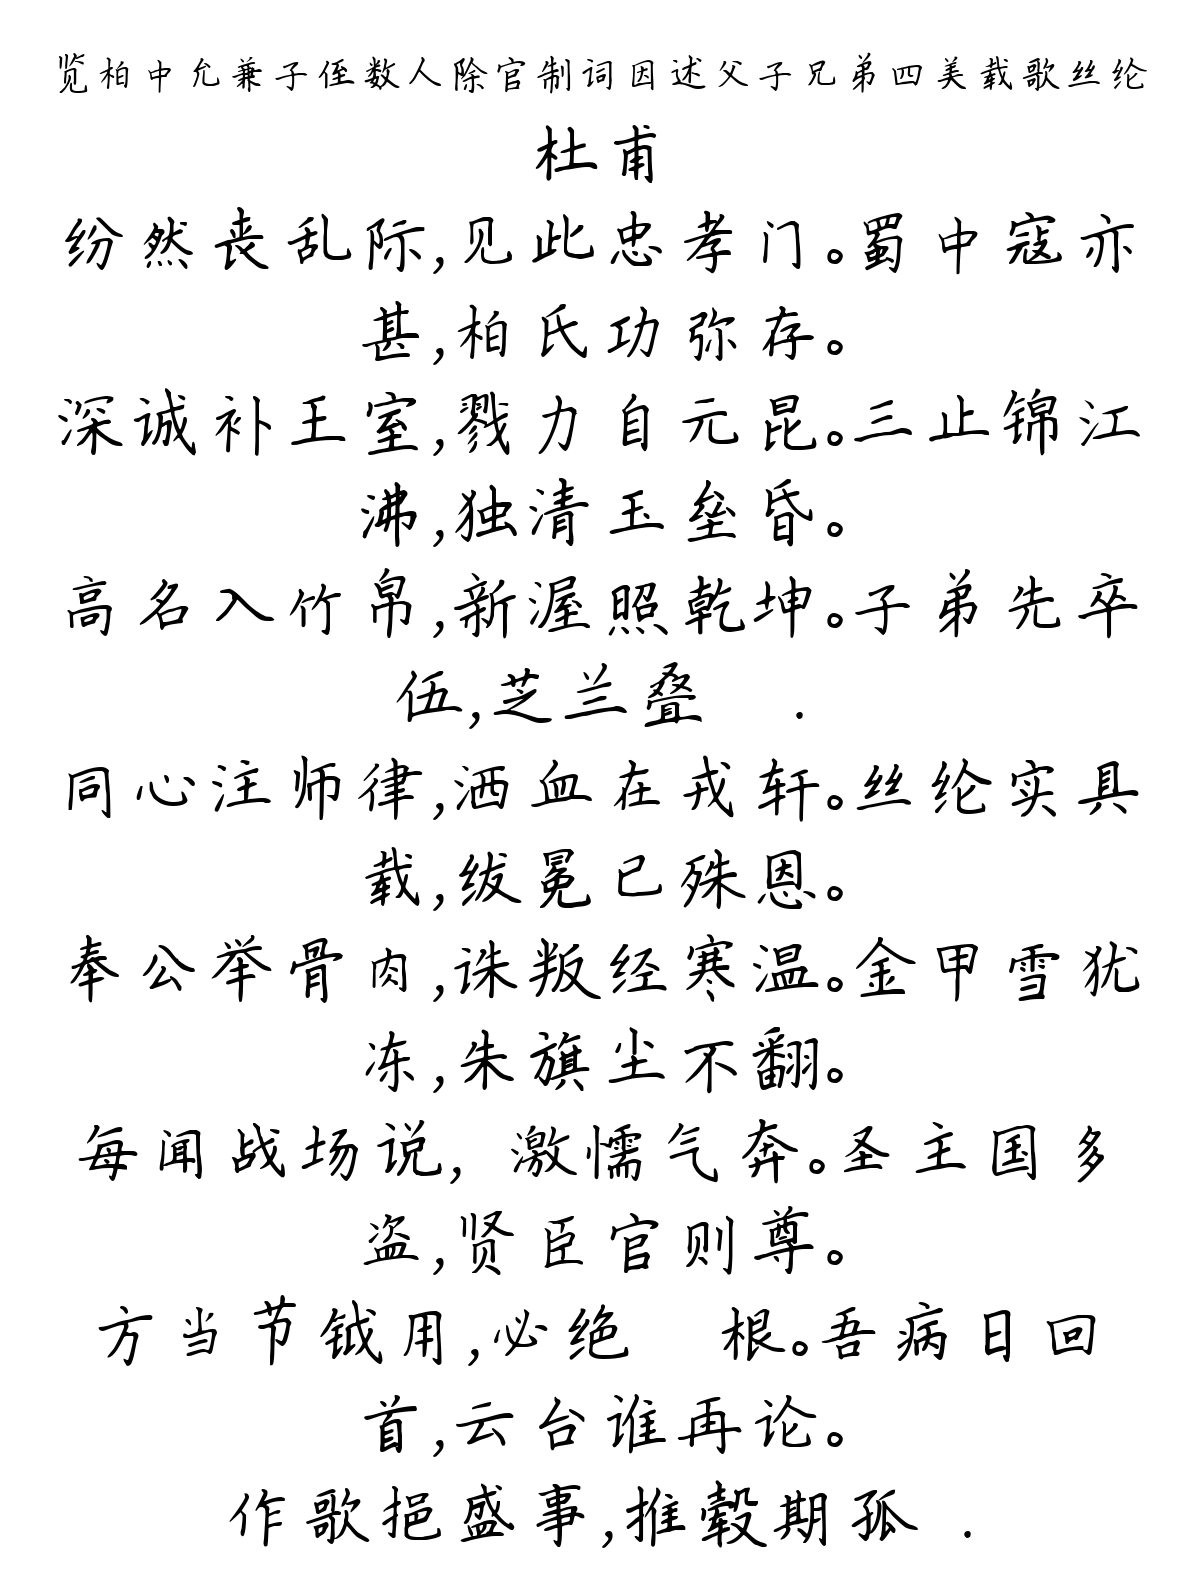 览柏中允兼子侄数人除官制词因述父子兄弟四美载歌丝纶
杜甫
纷然丧乱际,见此忠孝门。蜀中寇亦
甚,柏氏功弥存。
深诚补王室,戮力自元昆。三止锦江
沸,独清玉垒昏。
高名入竹帛,新渥照乾坤。子弟先卒
伍,芝兰叠 .
同心注师律,洒血在戎轩。丝纶实具
载,绂冕已殊恩。
奉公举骨肉,诛叛经寒温。金甲雪犹
冻,朱旗尘不翻。
每闻战场说, 激懦气奔。圣主国多
盗,贤臣官则尊。
方当节钺用,必绝 根。吾病日回
首,云台谁再论。
作歌挹盛事,推毂期孤 .